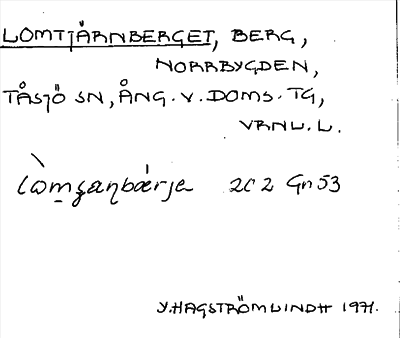 LOMTJÄRNBERGET, BERG,
NORRBYGDEN,
TÅSJÖ SN, ÅNG. V. DOMS. TG,
VRNL. L.
2C2 Gn53
Y. HAGSTRÖMLINDH 1971.